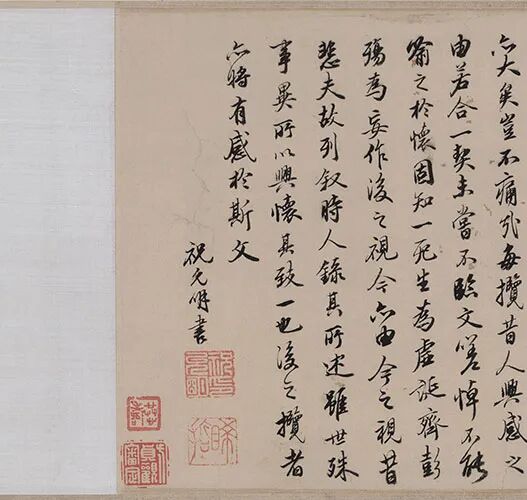 亦大矣豈不痛哉每攬昔人興感之
由若合一契未嘗不臨文嗟悼不能
喻之於懷固知一死生為虛誕齊彭
殤為妄作後之視今亦由今之視昔
悲夫故列叙時人錄其所述雖世殊
事異所以興懷其致一也後之攬者
亦將有感於斯文
祝允明書